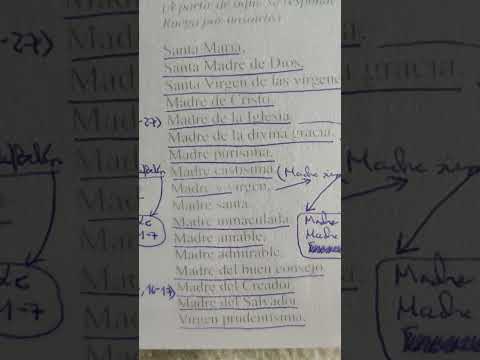 (A partir de aquí se responde
Ruega por nosotros)
Santa María,
Santa Madre de Dios,
Santa Virgen de las vírgene
Madre de Cristo,
-27) Madre de la Iglesia,
Madre de la divina gracia,
Madre purísima,
Madre castísima, (Madre
Madre y virgen,
Madre santa,
Madre inmaculada,
Madre amable,
Madre admirable,
Madre del buen consejo,
, 16-17) Madre del Creador,
Madre del Salvador,
Virgen prudentísima,
1-7
Madre
Madre